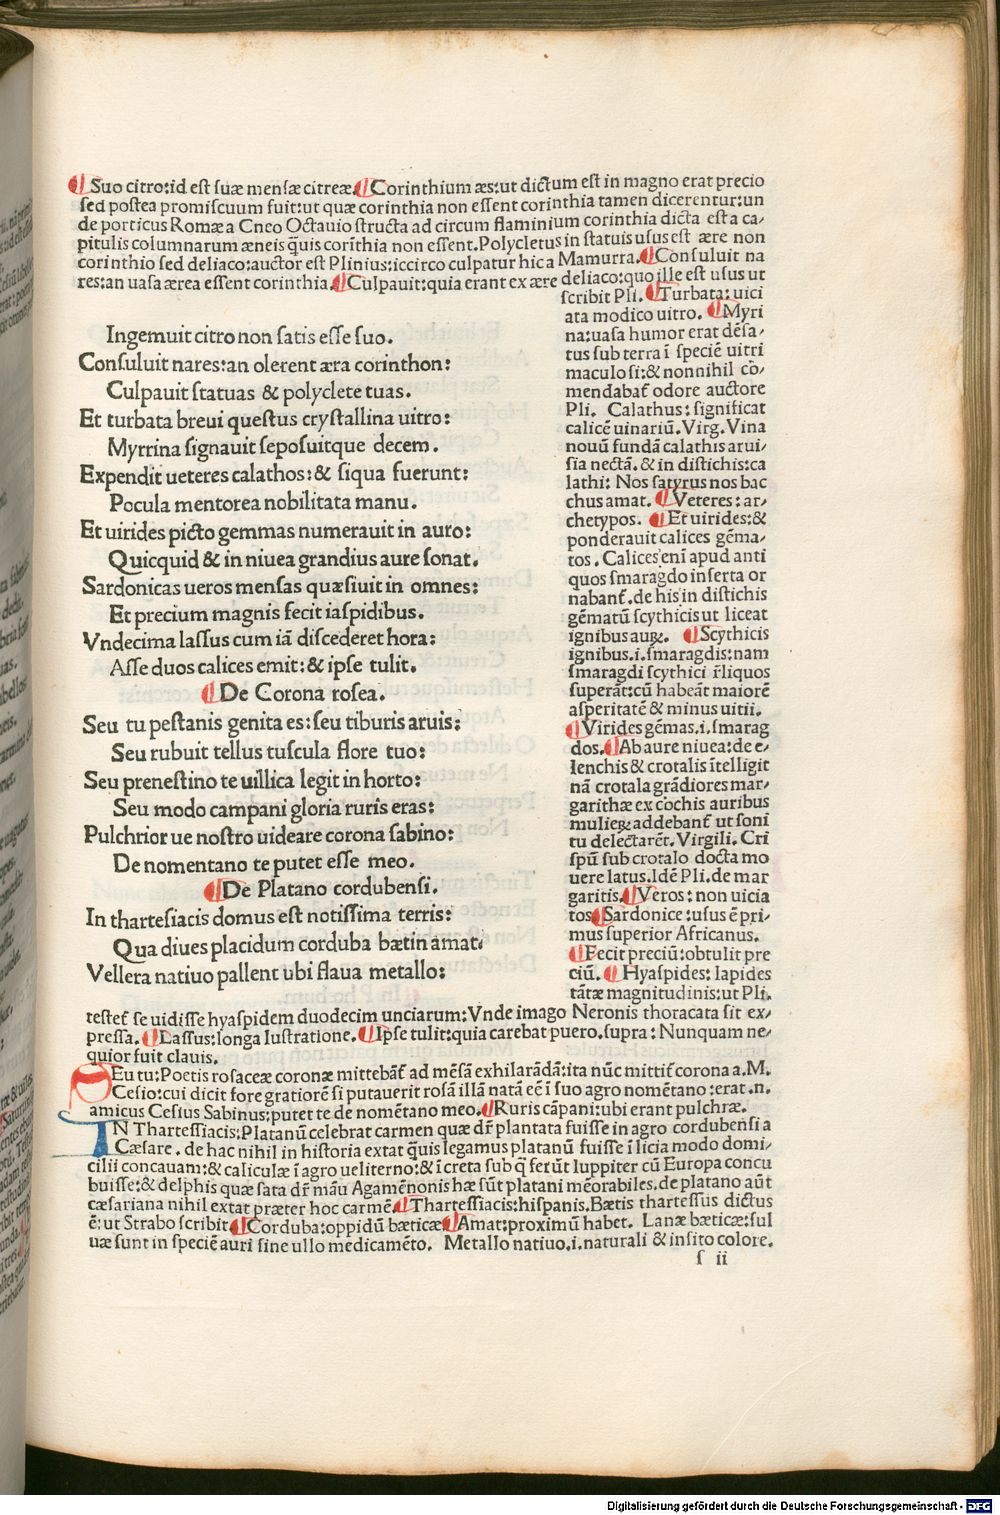 ¶ Suo citro:id est suæ mensæ citreæ.¶ Corinthium æs:ut dictum est in magno erat precio
sed postea promiscuum fuit:ut quæ corinthia non essent corinthia tamen dicerentur:un
de porticus Romæ a Cneo Octauio structa ad circum flaminium corinthia dicta est a ca-
pitulis columnarum æneis q̃uis corĩthia non essent. Polycletus in statuis usus est ære non
corinthio sed deliaco:auctor est Plinius:iccirco culpatur hic a Mamurra.¶ Consuluit na
res:an uasa ærea essent corinthia.¶ Culpauit:quia erant ex ære deliaco:quo ille est usus ut
scribit Pli. ¶ Turbata: uici
ata modico uitro. ¶ Myri
na:uasa humor erat dẽsa-
tus sub terra ĩ speciẽ uitri
maculosi:& nonnihil cõ-
mendabat᷑ odore auctore
Pli. Calathus: significat
calicẽ uinariũ. Virg. Vina
nouũ fundã calathis arui-
sia nectã. & in distichis:ca
lathi: Nos satyrus nos bac
chus amat. ¶ Veteres: ar-
chetypos. ¶ Et uirides:&
ponderauit calices gẽma-
tos. Calices eni apud anti
quos smaragdo inserta or
nabant᷑. de his in distichis
gẽmatũ scythicis ut liceat
ignibus auꝝ. ¶ Scythicis
ignibus.i.smaragdis:nam
smaragdi scythici r̃liquos
superãt:cũ habeãt maiorẽ
asperitatẽ & minus uitii.
¶ Virides gẽmas.i.smarag
dos.¶ Ab aure niuea:de e-
lenchis & crotalis ĩtelligit
nã crotala grãdiores mar-
garithæ ex cochis auribus
mulieꝝ addebant᷑ ut soni
tu delectarẽt. Virgili. Cri
spũ sub crotalo docta mo
uere latus. Idẽ Pli. de mar
garitis.¶ Veros: non uicia
tos¶ Sardonice:usus ẽ pri-
mus superior Africanus.
¶ Fecit preciũ:obtulit pre
ciũ. ¶ Hyaspides: lapides
tãtæ magnitudinis:ut Pli.
Ingemuit citro non satis esse suo.
Consuluit nares:an olerent æra corinthon:
Culpauit statuas & polyclete tuas.
Et turbata breui questus crystallina uitro:
Myrrina signauit seposuitque decem.
Expendit ueteres calathos:& siqua fuerunt:
Pocula mentorea nobilitata manu.
Et uirides picto gemmas numerauit in auro:
Quicquid & in niuea grandius aure sonat.
Sardonicas ueros mensas quæsiuit in omnes:
Et precium magnis fecit iaspidibus.
Vndecima lassus cum iã discederet hora:
Asse duos calices emit:& ipse tulit.
¶ De Corona rosea.
Seu tu pestanis genita es:seu tiburis aruis:
Seu rubuit tellus tuscula flore tuo:
Seu prenestino te uillica legit in horto:
Seu modo campani gloria ruris eras:
Pulchrior ue nostro uideare corona sabino:
De nomentano te putet esse meo.
¶ De Platano cordubensi.
In thartesiacis domus est notissima terris:
Qua diues placidum corduba bætin amat.
Vellera natiuo pallent ubi flaua metallo:
testet᷑ se uidisse hyaspidem duodecim unciarum:Vnde imago Neronis thoracata sit ex-
pressa.¶ Lassus:longa lustratione.¶ Ipse tulit:quia carebat puero.supra: Nunquam ne-
quior fuit clauis.
SEu tu:Poetis rosaceæ coronæ mittebãt᷑ ad mẽsã exhilarãdã:ita nũc mittit᷑ corona a.M.
Cesio:cui dicit fore gratiorẽ si putauerit rosã illã natã eẽ ĩ suo agro nomẽtano:erat.n.
amicus Cesius Sabinus:putet te de nomẽtano meo.¶ Ruris cãpani:ubi erant pulchræ.
IN Thartessiacis:Platanũ celebrat carmen quæ dr̃ plantata fuisse in agro cordubensi a
Cæsare. de hac nihil in historia extat q̃uis legamus platanũ fuisse ĩ licia modo domi-
cilii concauam:& caliculæ ĩ agro ueliterno:& ĩ creta sub q̃ ferũt Iuppiter cũ Europa concu
buisse:& delphis quæ sata dr̃ mãu Agamẽnonis hæ sũt platani mẽorabiles.de platano aũt
cæsariana nihil extat præter hoc carmẽ¶ Thartessiacis:hispanis. Bætis thartessus dictus
ẽ:ut Strabo scribit¶ Corduba:oppidũ bæticæ¶ Amat:proximũ habet. Lanæ bæticæ:ful
uæ sunt in speciẽ auri sine ullo medicamẽto. Metallo natiuo.i.naturali & insito colore.
s ii
Digitalisierung gefördert durch die Deutsche Forschungsgemeinschaft - DFG